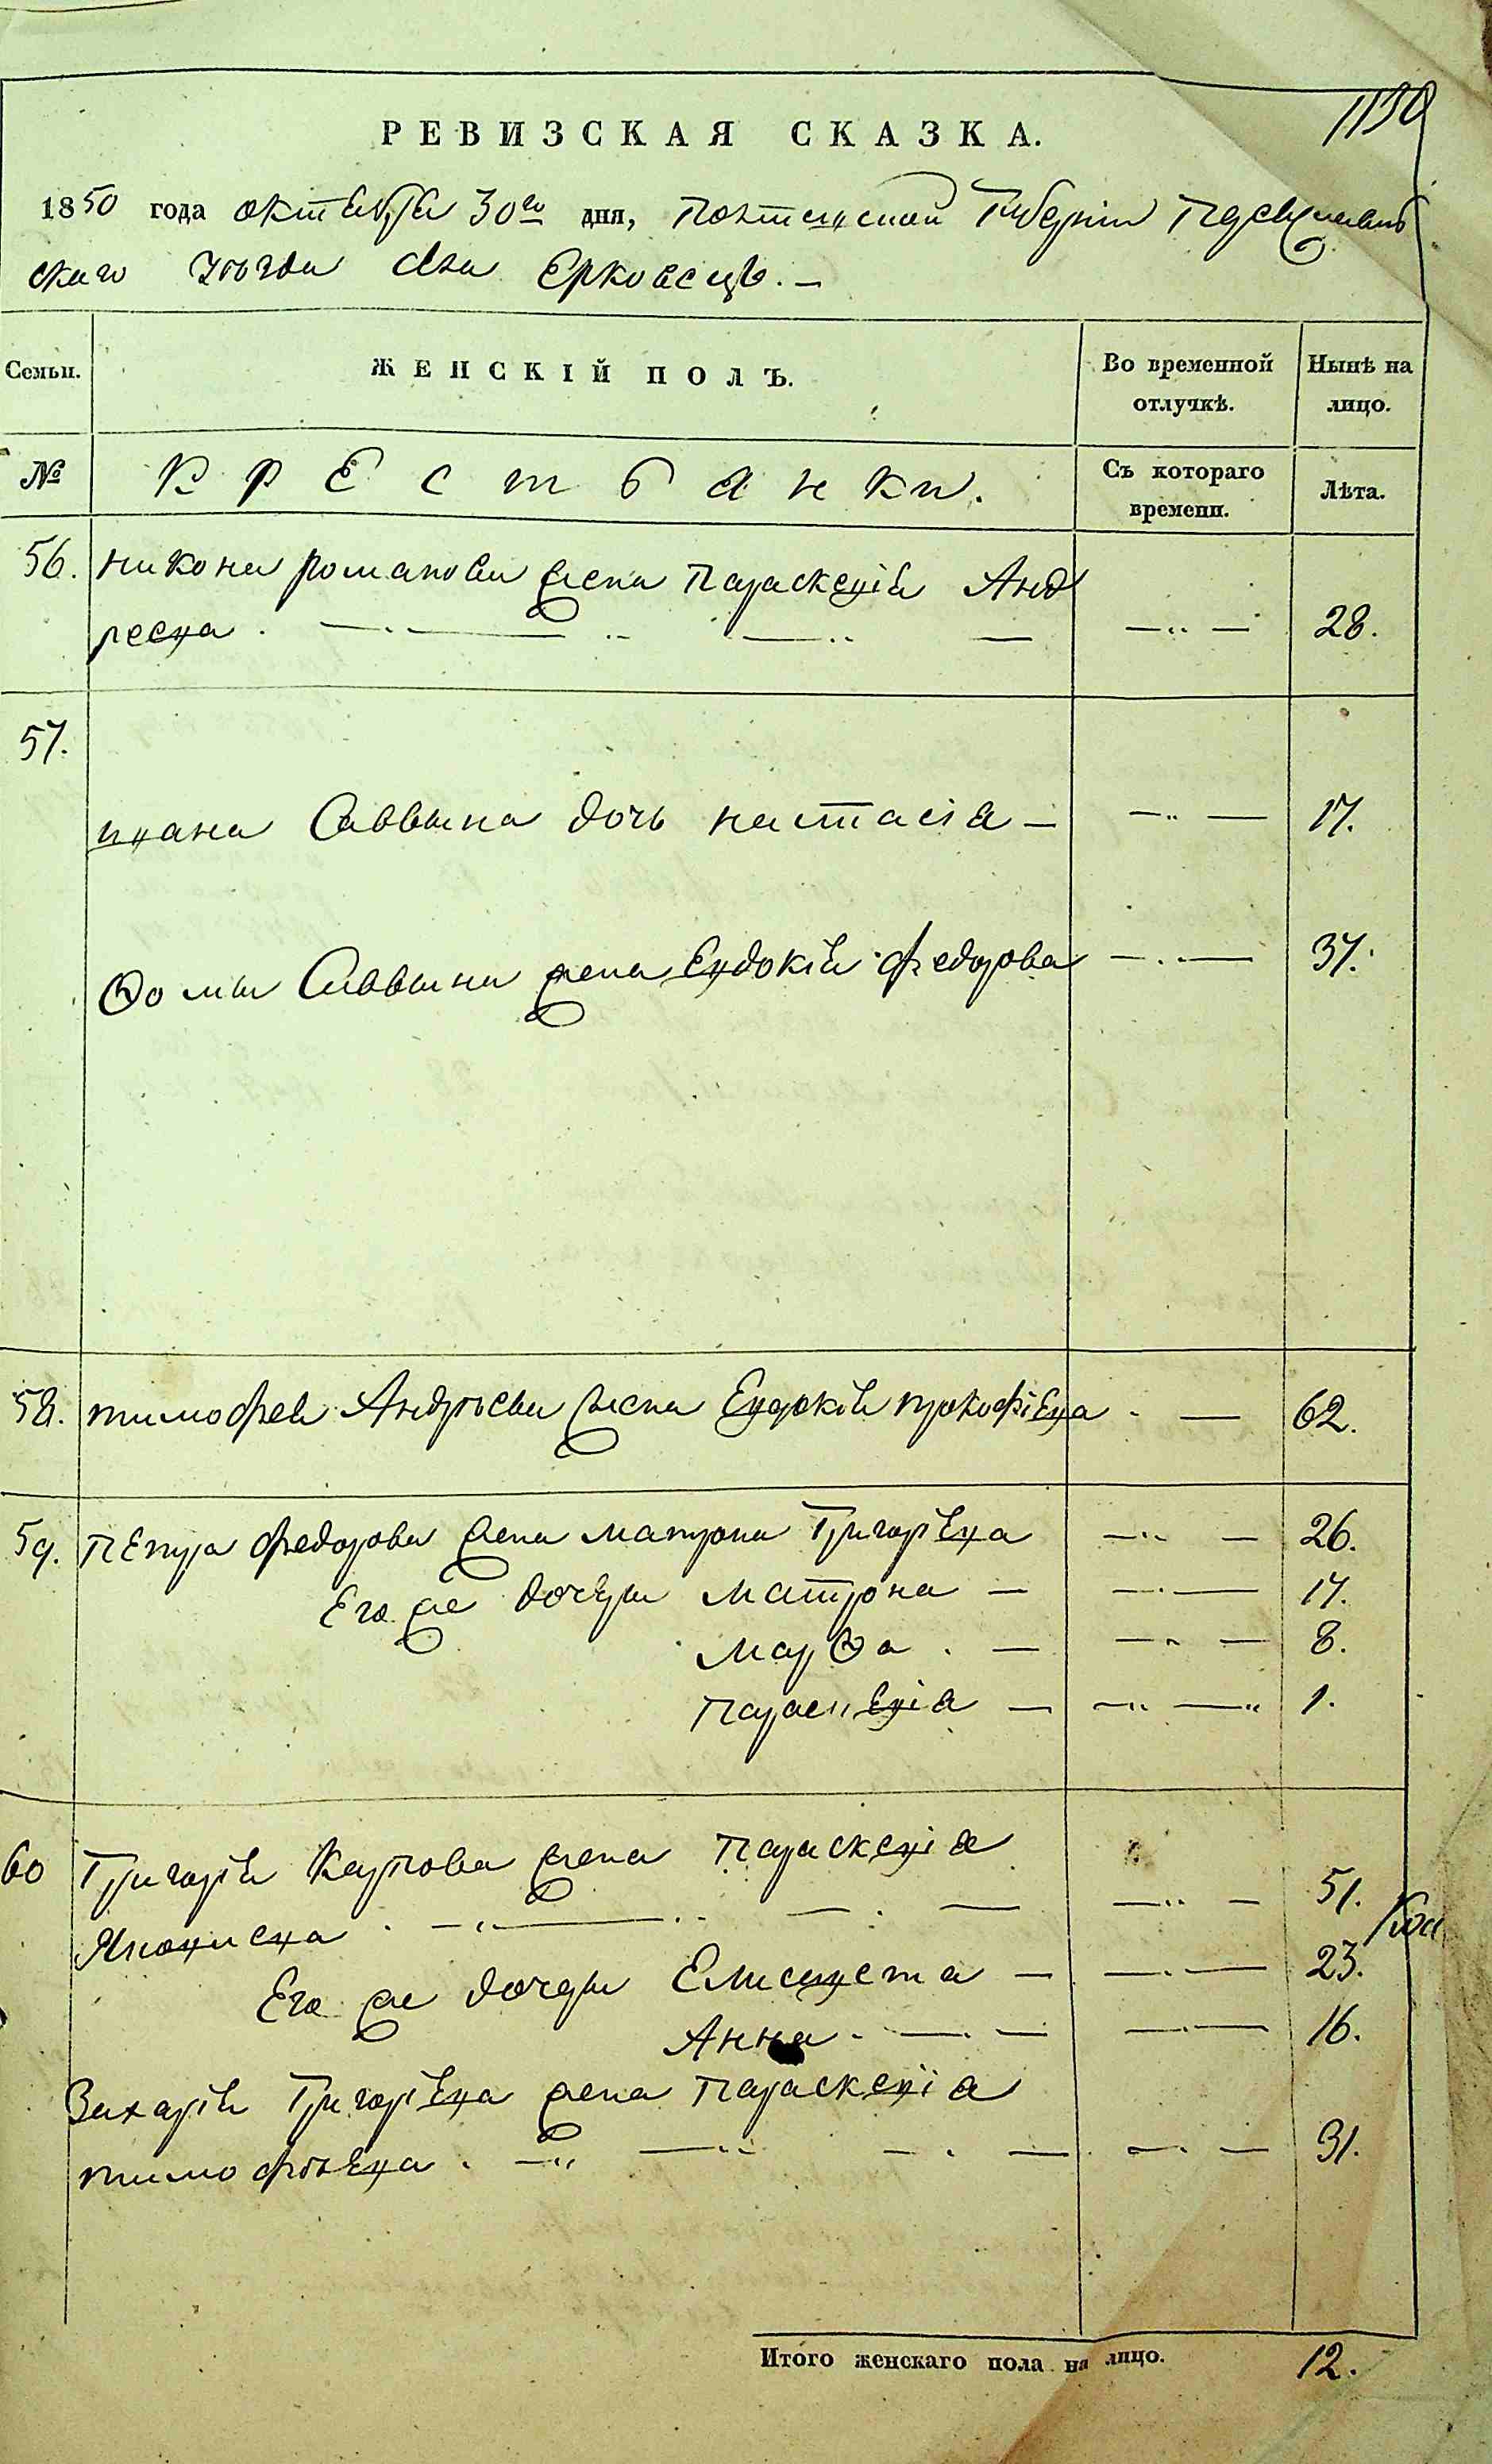 1130
РЕВИЗСКАЯ СКАЗКА.
1850 года октабра 30го дня, Полтавской Губерніи Переяславъ
скаго уѣзда села Ерковецъ. —
Семьи.
ЖЕНСКІЙ ПОЛЪ.
Во временной отлучкѣ.
Нынѣ на лицо.
№
Крестьанки.
Съ котораго времени.
Лѣта.
56. никона романова жена Параскевіа Анд — 28.
реева.
57.
ивана Саввына дочь настасіа — 17.
Ѳомы Саввына жена Евдокіа федорова — 37.
58. тимофеа Андрѣева жена Евдокіа прокофіева — 62.
59. Петра федорова жена матрона Григоріева — 26.
Его же дочери матрона — 17.
марѳа. — 8.
Параскевіа — 1.
60 Григоріа Карпова жена Параскевіа
Якимиева — 51.
Его же дочери Елисавета — 23.
Анна — 16.
Захаріа Григоріева жена Параскевіа
тимофѣева. — 31.
Итого женскаго пола на лицо. 12.